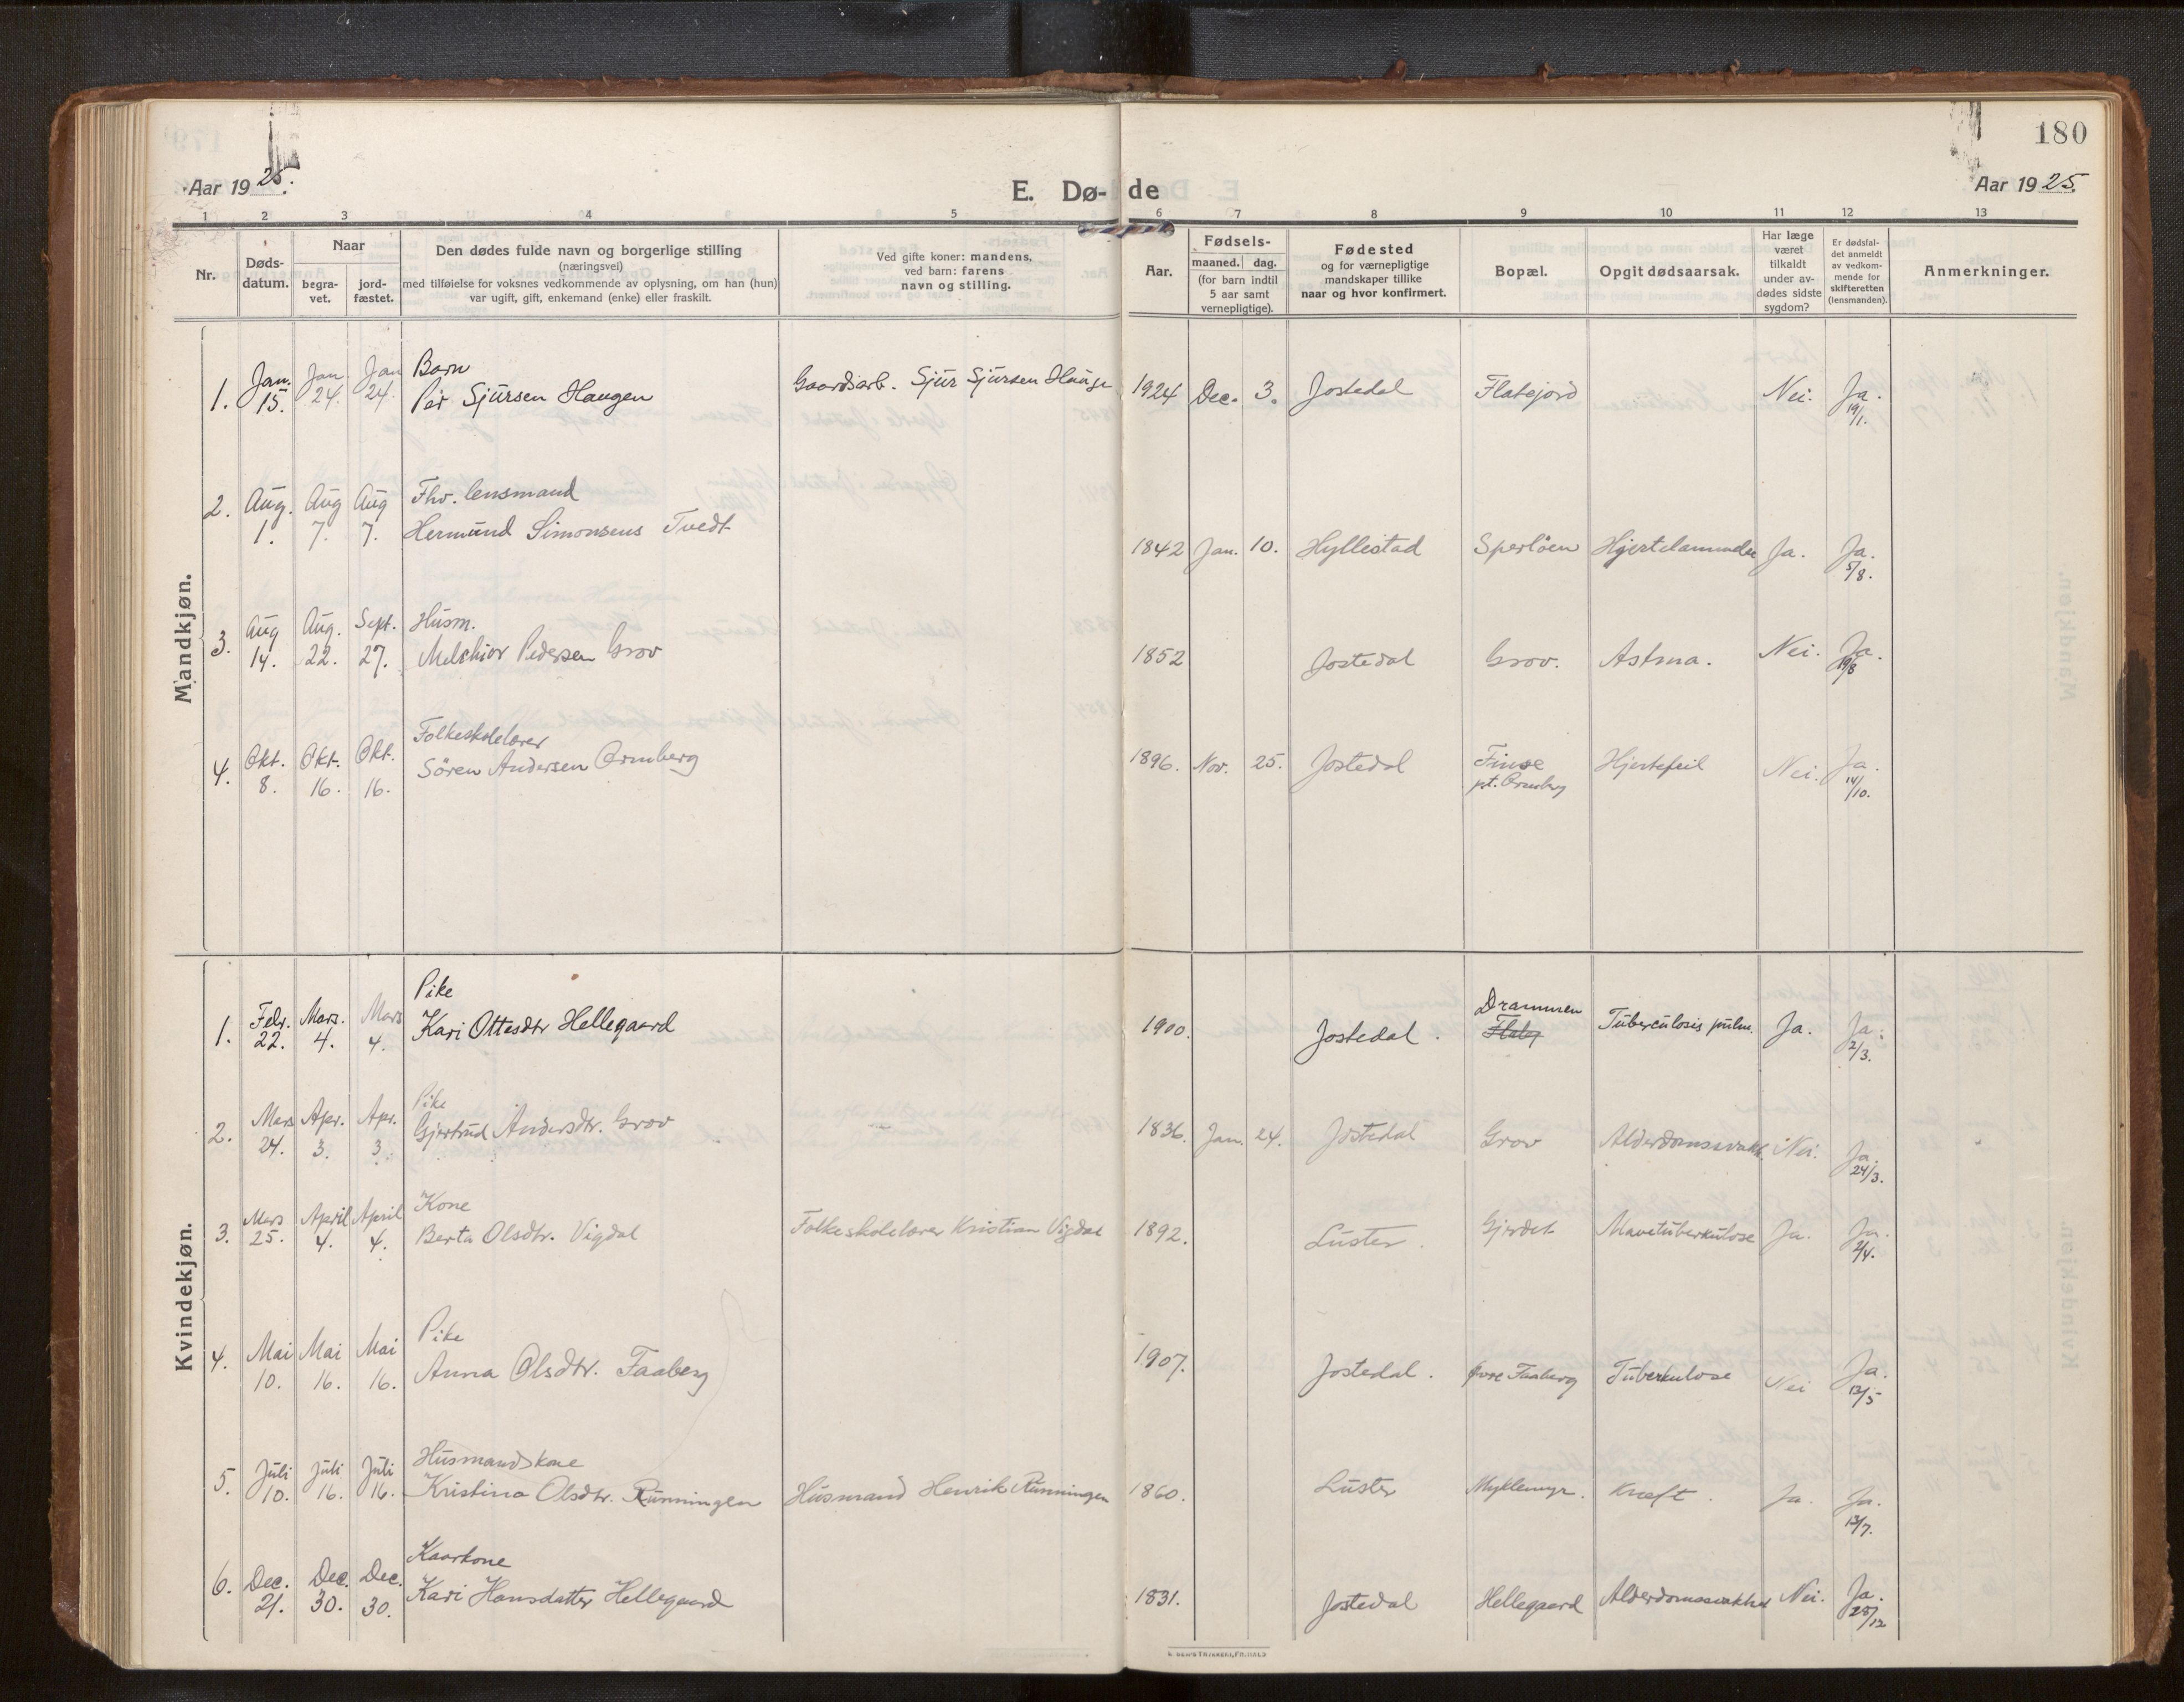 180
Aar 1925.
E. Dø-de
Aar 1925.
1 2 3 4 5 6 7 8 9 10 11 12 13
Nr.
Døds-
datum.
Naar
begra-
vet.
jord-
fæstet.
Den dødes fulde navn og borgerlige stilling
(næringsvei)
med tilføielse for voksnes vedkommende av oplysning, om han (hun)
var ugift, gift, enkemand (enke) eller fraskilt.
Ved gifte koner: mandens,
ved barn: farens
navn og stilling.
Aar.
Fødsels-
maaned. dag.
(for barn indtil
5 aar samt
vernepligtige).
Fødested
og for værnepligtige
mandskaper tillike
naar og hvor konfirmert.
Bopæl.
Opgit dødsaarsak.
Har læge
været
tilkaldt
under av-
dødes sidste
sygdom?
Er dødsfal-
det anmeldt
av vedkom-
mende for
skifteretten
(lensmanden).
Anmerkninger.
Mandkjøn.
Barn
1. Jan. 15. Jan. 24. Jan 24. Per Sjursen Haugen Gaardsarb. Sjur Sjursen Hauge 1924 Dec. 3. Jostedal Flatejord Nei. Ja. 19/1.
Fhv. lensmand
2. Aug. 1. Aug 7. Aug 7. Hermund Simonsens Tvedt 1842 Jan. 10. Hyllestad Sperlöen Hjertelammelse Ja. Ja. 5/8.
Husm.
3. Aug 14. Aug. 22. Sept. 27. Melchior Pedersen Grov 1852 Jostedal Grov. Astma. Nei. Ja. 19/8
Folkeskolelærer
4. Okt. 8. Okt. 16. Okt. 16. Sören Andersen Ormberg 1896. Nov. 25. Jostedal Finse pt. Ormberg Hjertefeil Nei. Ja. 14/10.
Kvindekjøn.
Pike
1. Febr. 22. Mars. 4. Mars 4. Kari Ottesdtr Hellegaard 1900. Jostedal. Drammen Tuberculosis pulm. Ja. Ja. 2/3.
Pike
2. Mars 24. Apr. 3. Apr. 3. Gjertrud Andersdtr. Grov 1836. Jan. 24. Jostedal Grov Alderdomssvakh. Nei. Ja. 24/3.
Kone
3. Mars 25. April 4. April 4. Berta Olsdtr. Vigdal Folkeskolelærer Kristian Vigdal 1892. Luster. Gjerdet Mavetuberkulose Ja. Ja. 2/4.
Pike
4. Mai 10. Mai 16. Mai 16. Anna Olsdtr. Faaberg 1907. Jostedal. Øvre Faaberg Tuberkulose Nei Ja. 13/5
Husmandskone
5. Juli 10. Juli 16. Juli 16. Kristina Olsdtr. Rünningen Husmand Henrik Rünningen 1860. Luster Myklemyr. Kræft. Ja. Ja. 13/7.
Kaarkone
6. Dec. 21. Dec. 30. Dec. 30. Kari Hansdatter Hellegaard 1831. Jostedal Hellegaard Alderdomssvakhet Nei. Ja. 28/12